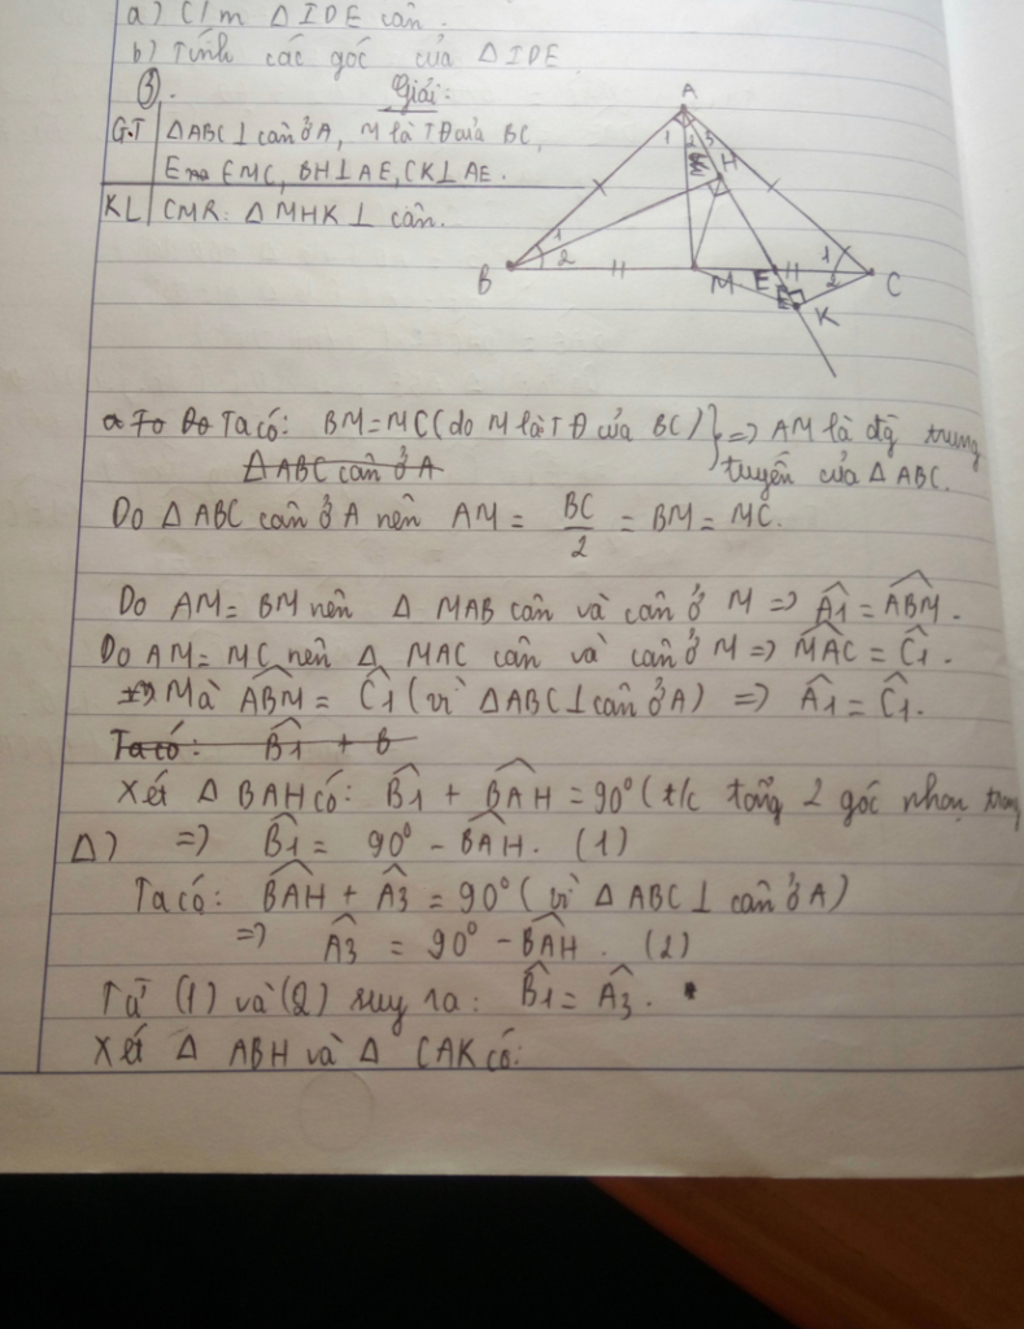 a) C/m △IDE cân.
b) Tính các góc của △IDE
③. Giải:
G.T △ABC ⊥ cân ở A, M là TĐ của BC,
E ∈ MC, BH ⊥ AE, CK ⊥ AE.
KL CMR: △ MHK ⊥ cân.
A
1 2 3 H
B 1 2 M E 1 2 C
E K
a To Do Ta có: BM = MC (do M là TĐ của BC) } => AM là đg trung
△ABC cân ở A tuyến của △ABC.
Do △ABC cân ở A nên AM = BC/2 = BM = MC.
Do AM = BM nên △ MAB cân và cân ở M => Â1 = ABM̂.
Do AM = MC nên △ MAC cân và cân ở M => MAĈ = Ĉ1.
=> Mà ABM̂ = Ĉ1 (vì △ABC ⊥ cân ở A) => Â1 = Ĉ1.
Ta có: B̂1 + B
Xét △ BAH có: B̂1 + BAĤ = 90° (t/c tổng 2 góc nhọn trong
△) => B̂1 = 90° - BAĤ. (1)
Ta có: BAĤ + Â3 = 90° (vì △ABC ⊥ cân ở A)
=> Â3 = 90° - BAĤ. (2)
Từ (1) và (2) suy ra: B̂1 = Â3.
Xét △ ABH và △ CAK có: